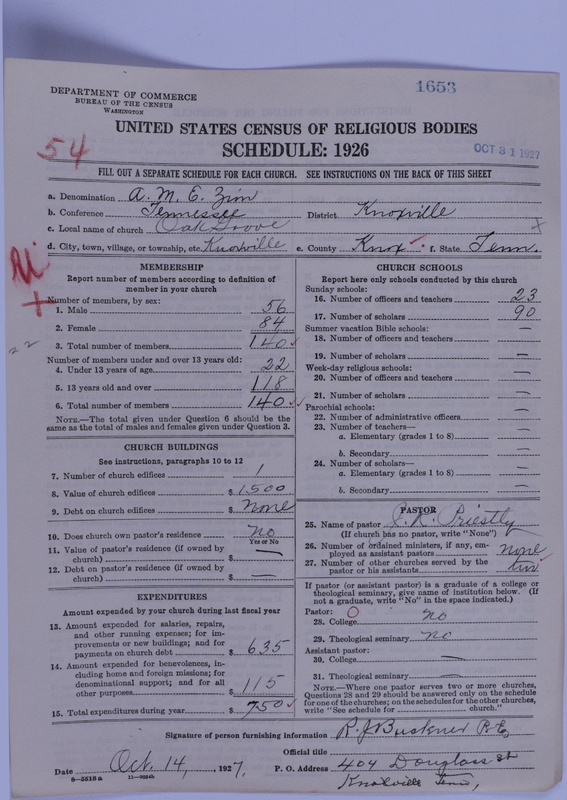 1653
DEPARTMENT OF COMMERCE
BUREAU OF THE CENSUS
WASHINGTON
UNITED STATES CENSUS OF RELIGIOUS BODIES
54
SCHEDULE: 1926
OCT 31 1927
FILL OUT A SEPARATE SCHEDULE FOR EACH CHURCH. SEE INSTRUCTIONS ON THE BACK OF THIS SHEET
a. Denomination A. M. E. Zion
b. Conference Tennessee District Knoxville
c. Local name of church Oak Grove
d. City, town, village, or township, etc. Knoxville e. County Knox f. State Tenn.
MEMBERSHIP
Report number of members according to definition of
member in your church
Number of members, by sex:
1. Male 56
2. Female 84
3. Total number of members 140
22
Number of members under and over 13 years old:
4. Under 13 years of age 22
5. 13 years old and over 118
6. Total number of members 140
NOTE.—The total given under Question 6 should be
same as the total of males and females given under Question 3.
CHURCH BUILDINGS
See instructions, paragraphs 10 to 12
7. Number of church edifices 1
8. Value of church edifices $ 1500
9. Debt on church edifices $ none
10. Does church own pastor's residence No
Yes or No
11. Value of pastor's residence (if owned by
church) $ —
12. Debt on pastor's residence (if owned by
church) $ —
EXPENDITURES
Amount expended by your church during last fiscal year
13. Amount expended for salaries, repairs,
and other running expenses; for im-
provements or new buildings; and for
payments on church debt $ 635
14. Amount expended for benevolences, in-
cluding home and foreign missions; for
denominational support; and for all
other purposes $ 115
15. Total expenditures during year $ 750
CHURCH SCHOOLS
Report here only schools conducted by this church
Sunday schools:
16. Number of officers and teachers 23
17. Number of scholars 90
Summer vacation Bible schools:
18. Number of officers and teachers —
19. Number of scholars —
Week-day religious schools:
20. Number of officers and teachers —
21. Number of scholars —
Parochial schools:
22. Number of administrative officers —
23. Number of teachers—
a. Elementary (grades 1 to 8) —
b. Secondary —
24. Number of scholars—
a. Elementary (grades 1 to 8) —
b. Secondary —
PASTOR
25. Name of pastor Priestly
(If church has no pastor, write "None")
26. Number of ordained ministers, if any, em-
ployed as assistant pastors none
27. Number of other churches served by the
pastor or his assistants two
If pastor (or assistant pastor) is a graduate of a college or
theological seminary, give name of institution below. (If
not a graduate, write "No" in the space indicated.)
Pastor: 0
28. College no
29. Theological seminary no
Assistant pastor:
30. College —
31. Theological seminary —
NOTE.—Where one pastor serves two or more churches,
Questions 28 and 29 should be answered only on the schedule
for one of the churches; on the schedules for the other churches,
write "See schedule for church."
Signature of person furnishing information R. J. Buckner P.E.
Official title
Date Oct. 14, 1927. P. O. Address 404 Douglass st
8—5518a Knoxville Tenn,